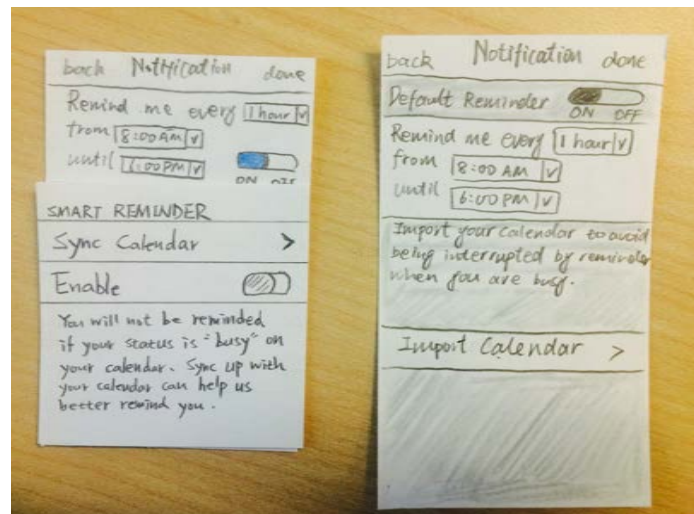 back Notification done
Remind me every 1 hour v
from 8:00 AM v
until 6:00 PM v
ON OFF
SMART REMINDER
Sync Calendar >
Enable
You will not be reminded
if your status is "busy" on
your calendar. Sync up with
your calendar can help us
better remind you.
back Notification done
Default Reminder
ON OFF
Remind me every 1 hour v
from 8:00 AM v
until 6:00 PM v
Import your calendar to avoid
being interrupted by reminder
when you are busy.
Import Calendar >